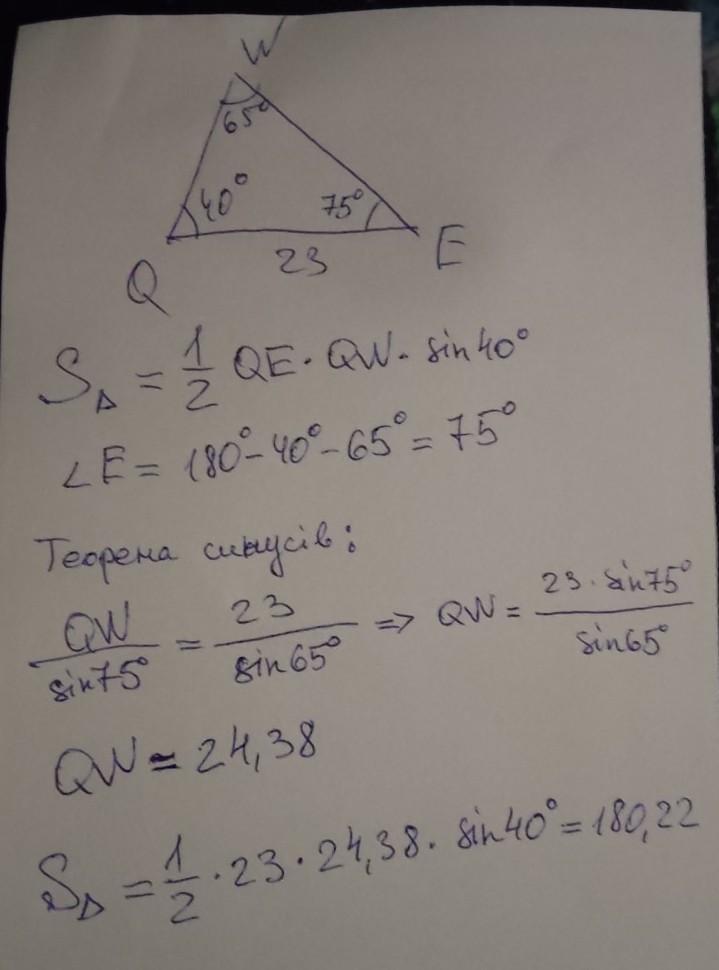 W
65°
40°
75°
Q
23
E
S△ = 1/2 QE · QW · sin40°
∠E = 180° - 40° - 65° = 75°
Теорема синусів:
QW/sin75° = 23/sin65° => QW = 23 · sin75°/sin65°
QW = 24,38
S△ = 1/2 · 23 · 24,38 · sin40° = 180,22